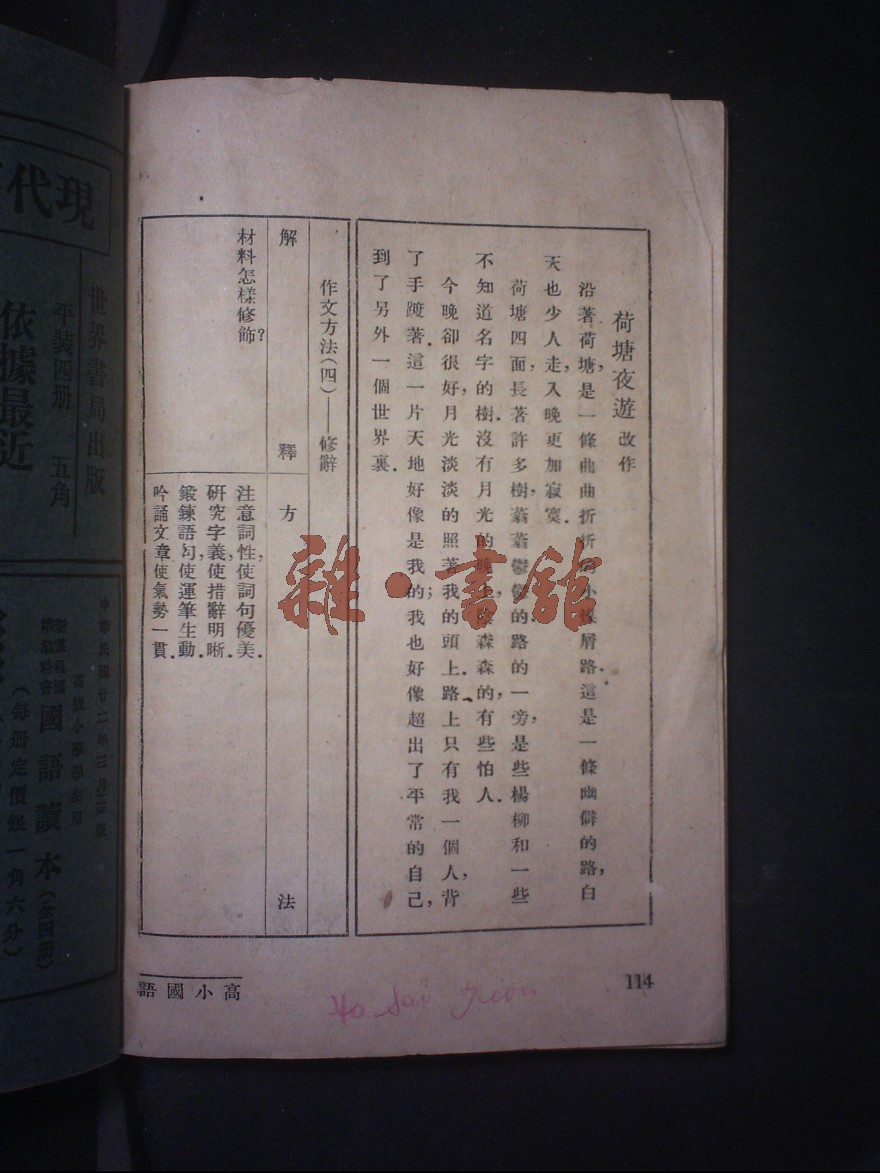 荷塘夜遊 改作
沿著荷塘，是一條曲曲折折的小煤屑路．這是一條幽僻的路，白
天也少人走，入晚更加寂寞．
荷塘四面，長著許多樹，蓊蓊鬱鬱的．路的一旁，是些楊柳和一些
不知道名字的樹．沒有月光的晚上，陰森森的，有些怕人．
今晚卻很好，月光淡淡的照著我的頭上．路上只有我一個人，背
了手踱著．這一片天地好像是我的；我也好像超出了平常的自己，
到了另外一個世界裏．
作文方法(四)——修辭
解釋
方法
材料怎樣修飾？
注意詞性，使詞句優美．
研究字義，使措辭明晰．
鍛鍊語句，使運筆生動．
吟誦文章，使氣勢一貫．
雜·書館
114
高小國語
Ho Sai
現代
世界書局出版
平裝四册 五角
依據最近
中華民國廿二年三月三版
高級小學學生用
國語讀本(全四册)
(每册定價銀一角六分)